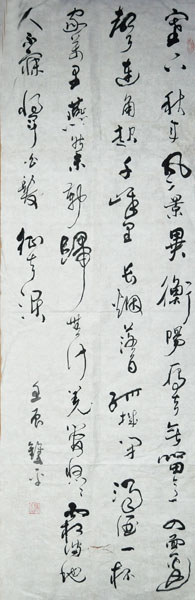 塞下秋來風景異衡陽雁去無留意四面邊
聲連角起千嶂里長煙落日孤城閉濁酒一杯
家萬里燕然未勒歸無計羌管悠々霜滿地
人不寐將軍白髮征夫淚
壬辰 雙